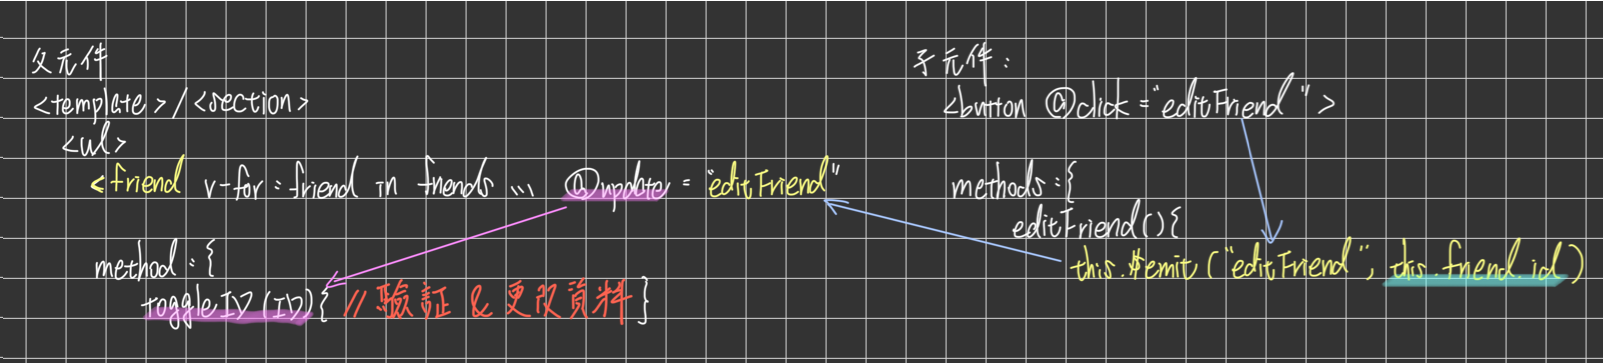 父元件
<template>/<section>
<ul>
<friend v-for:friend in friends ... @update = "editFriend"
method:{
toggleID(ID){ //驗証 & 更改資料}
子元件:
<button @click="editFriend">
methods:{
editFriend(){
this.$emit("editFriend", this.friend.id)